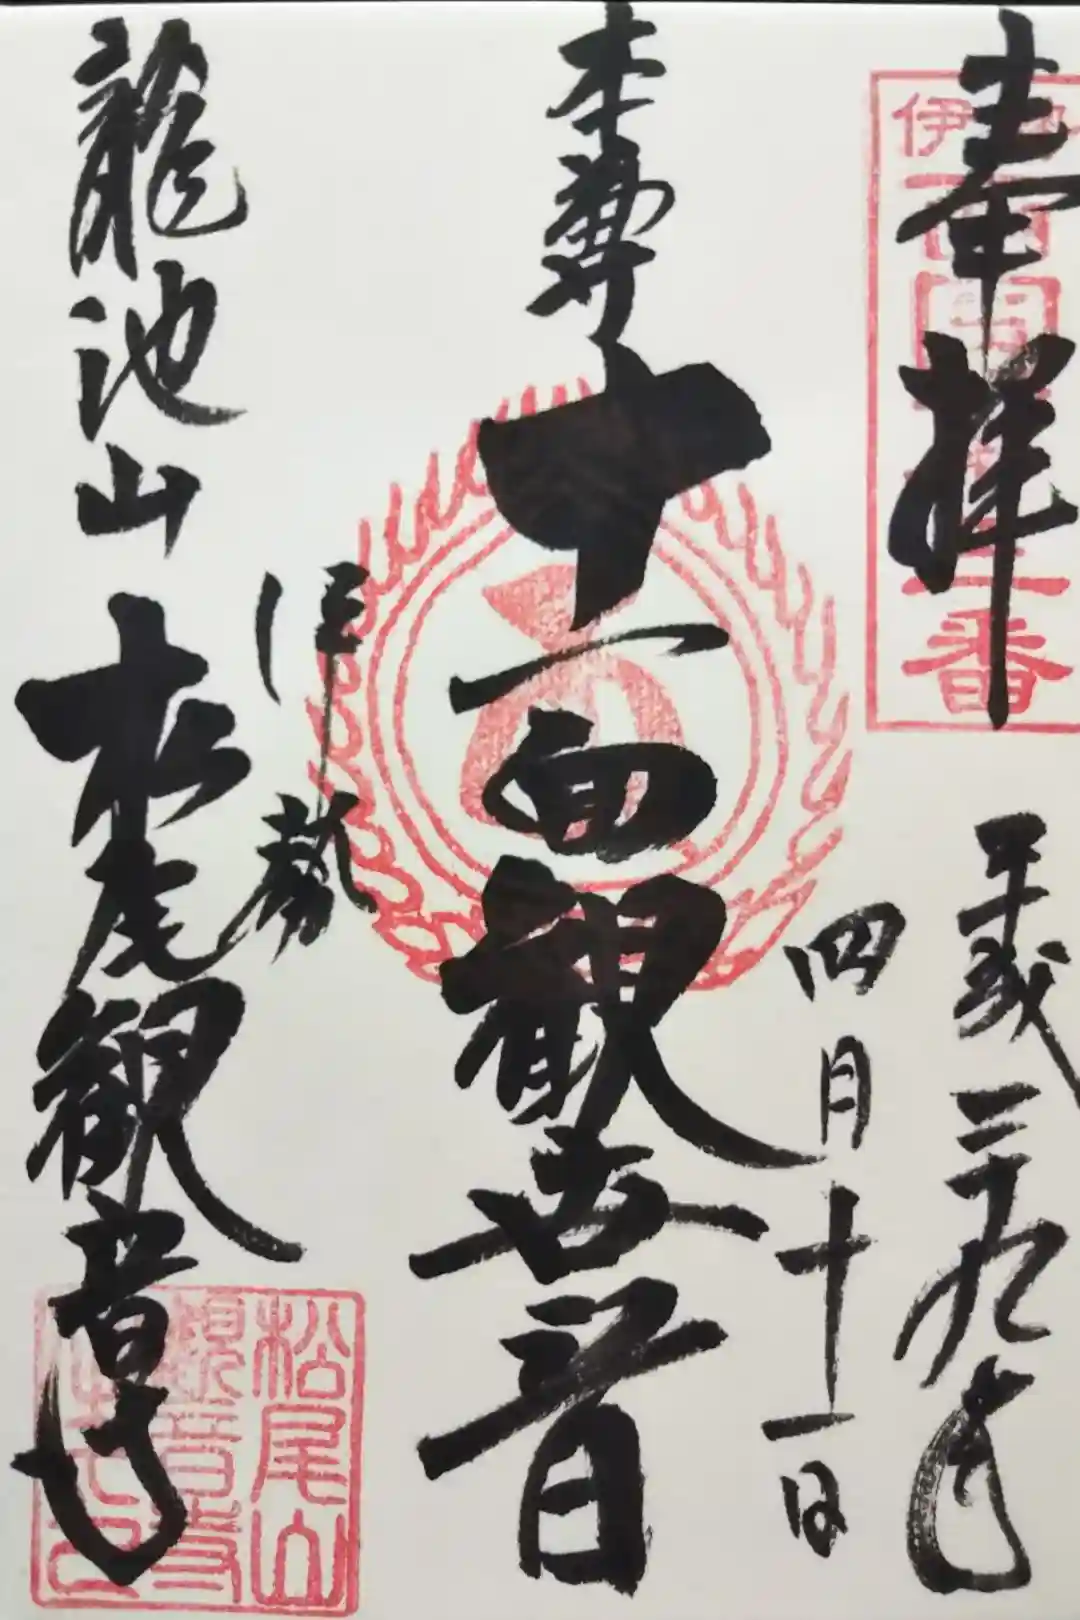 奉拝
平成二十九年
四月十一日
本尊
十一面観世音
伊勢
龍池山
松尾観音寺
伊
番
松尾山
観音寺